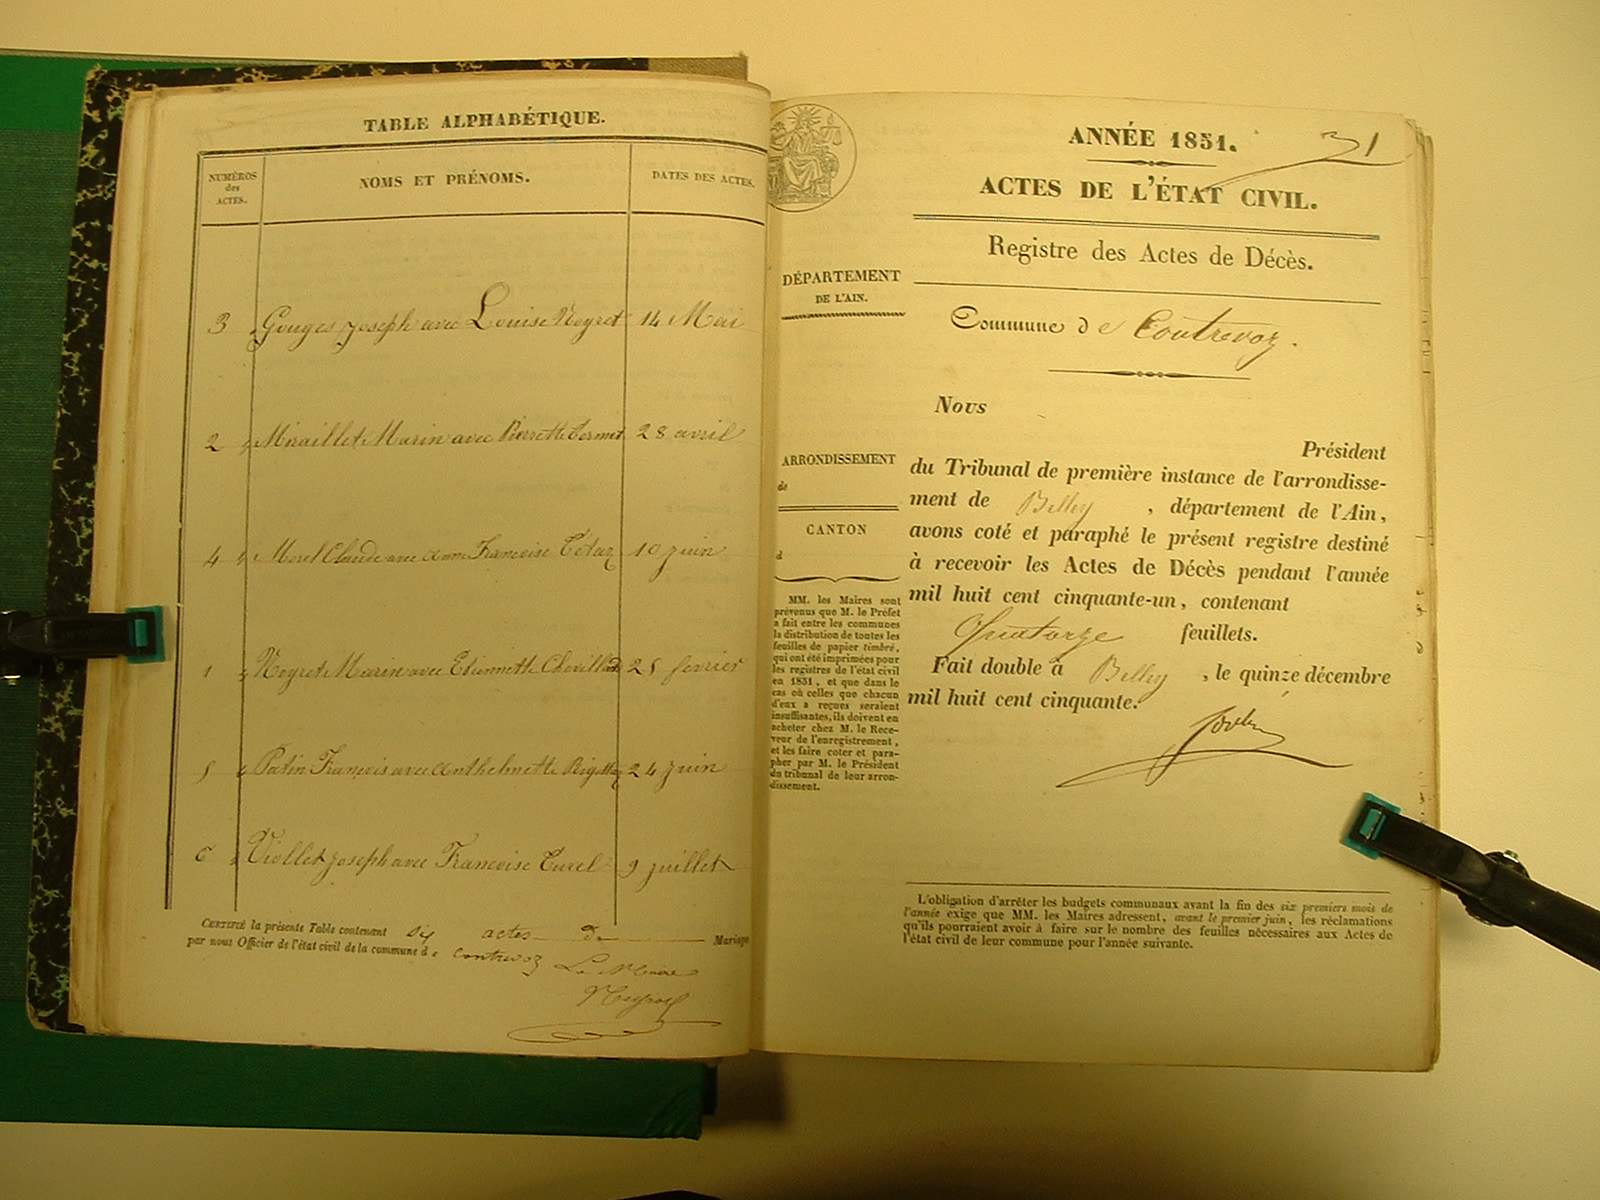 TABLE ALPHABÉTIQUE.
NUMÉROS
des
ACTES.
NOMS ET PRÉNOMS.
DATES DES ACTES.
3 Gouges Joseph avec Louise Neyret 14 Mai
2 Miraillet Marin avec Pierrette Permet 28 avril
4 Morel Claude avec Anne Françoise Tétaz 10 juin
1 Neyret Marin avec Etiennette Chevillard 25 fevrier
5 Patin François avec Anthelmette Rigottaz 24 juin
6 Viollet Joseph avec Francoise Curel 9 juillet
CERTIFIÉ la présente Table contenant six actes de Mariage
par nous Officier de l'état civil de la commune de Contrevoz Le Maire
Neyret
ANNÉE 1851.
31
ACTES DE L'ÉTAT CIVIL.
Registre des Actes de Décès.
DÉPARTEMENT
DE L'AIN.
Commune de Contrevoz.
ARRONDISSEMENT
de
CANTON
d
MM. les Maires sont
prévenus que M. le Préfet
a fait entre les communes
la distribution de toutes les
feuilles de papier timbré,
qui ont été imprimées pour
les registres de l'état civil
en 1851, et que dans le
cas où celles que chacun
d'eux a reçues seraient
insuffisantes, ils doivent en
acheter chez M. le Rece-
veur de l'enregistrement,
et les faire coter et para-
pher par M. le Président
du tribunal de leur arron-
dissement.
Nous
Président
du Tribunal de première instance de l'arrondisse-
ment de Belley, département de l'Ain,
avons coté et paraphé le présent registre destiné
à recevoir les Actes de Décès pendant l'année
mil huit cent cinquante-un, contenant
Quatorze feuillets.
Fait double à Belley, le quinze décembre
mil huit cent cinquante.
L'obligation d'arrêter les budgets communaux avant la fin des six premiers mois de
l'année exige que MM. les Maires adressent, avant le premier juin, les réclamations
qu'ils pourraient avoir à faire sur le nombre des feuilles nécessaires aux Actes de
l'état civil de leur commune pour l'année suivante.